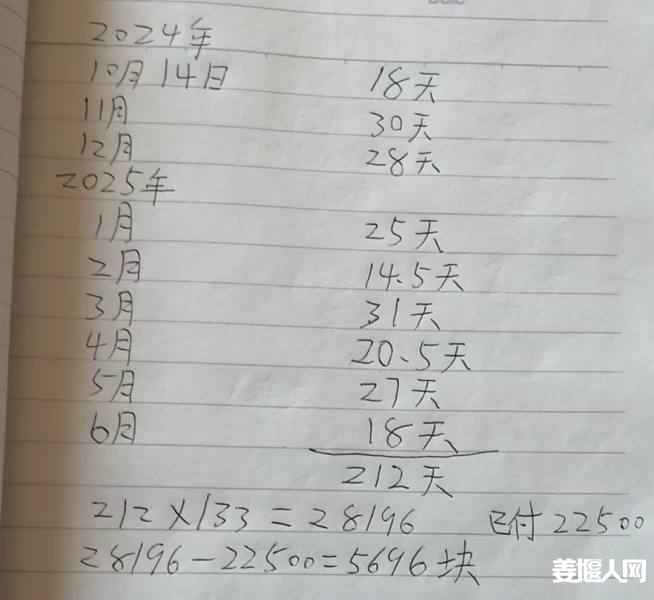 2024年
10月14日 18天
11月 30天
12月 28天
2025年
1月 25天
2月 14.5天
3月 31天
4月 20.5天
5月 27天
6月 18天
212天
212×133=28196 已付22500
28196-22500=5696块
姜堰人网